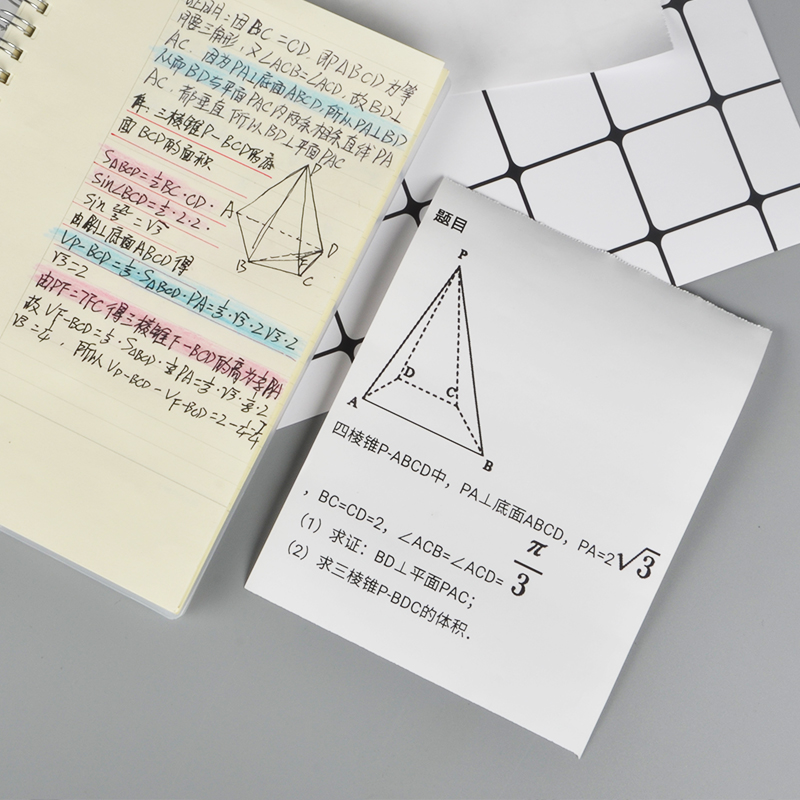 证明：因BC=CD，即△BCD为等
腰三角形，又∠ACB=∠ACD，故BD⊥
AC，因为PA⊥底面ABCD，所从PA⊥BD
从而BD与平面PAC内两条相条直线PA
AC，都垂直，所从BD⊥平面PAC
三棱锥P-BCD的底
面BCD的面积
S△BCD=½BC·CD·
sin∠BCD=½·2·2·
=√3
底面ABCD得
VP-BCD=⅓·S△BCD·PA=⅓·√3·2√3·2
√3=2
由PF=7FC得三棱锥F-BCD的高为⅛PA
故VF-BCD=⅓·S△BCD·⅛PA=⅓·√3·⅛·2
√3=¼，所从VP-BCD-VF-BCD=2-¼=7/4
A
B
C
D
F
题目
P
D
C
A
B
四棱锥P-ABCD中，PA⊥底面ABCD，PA=2√3
，BC=CD=2，∠ACB=∠ACD=π/3
（1）求证：BD⊥平面PAC；
（2）求三棱锥P-BDC的体积.